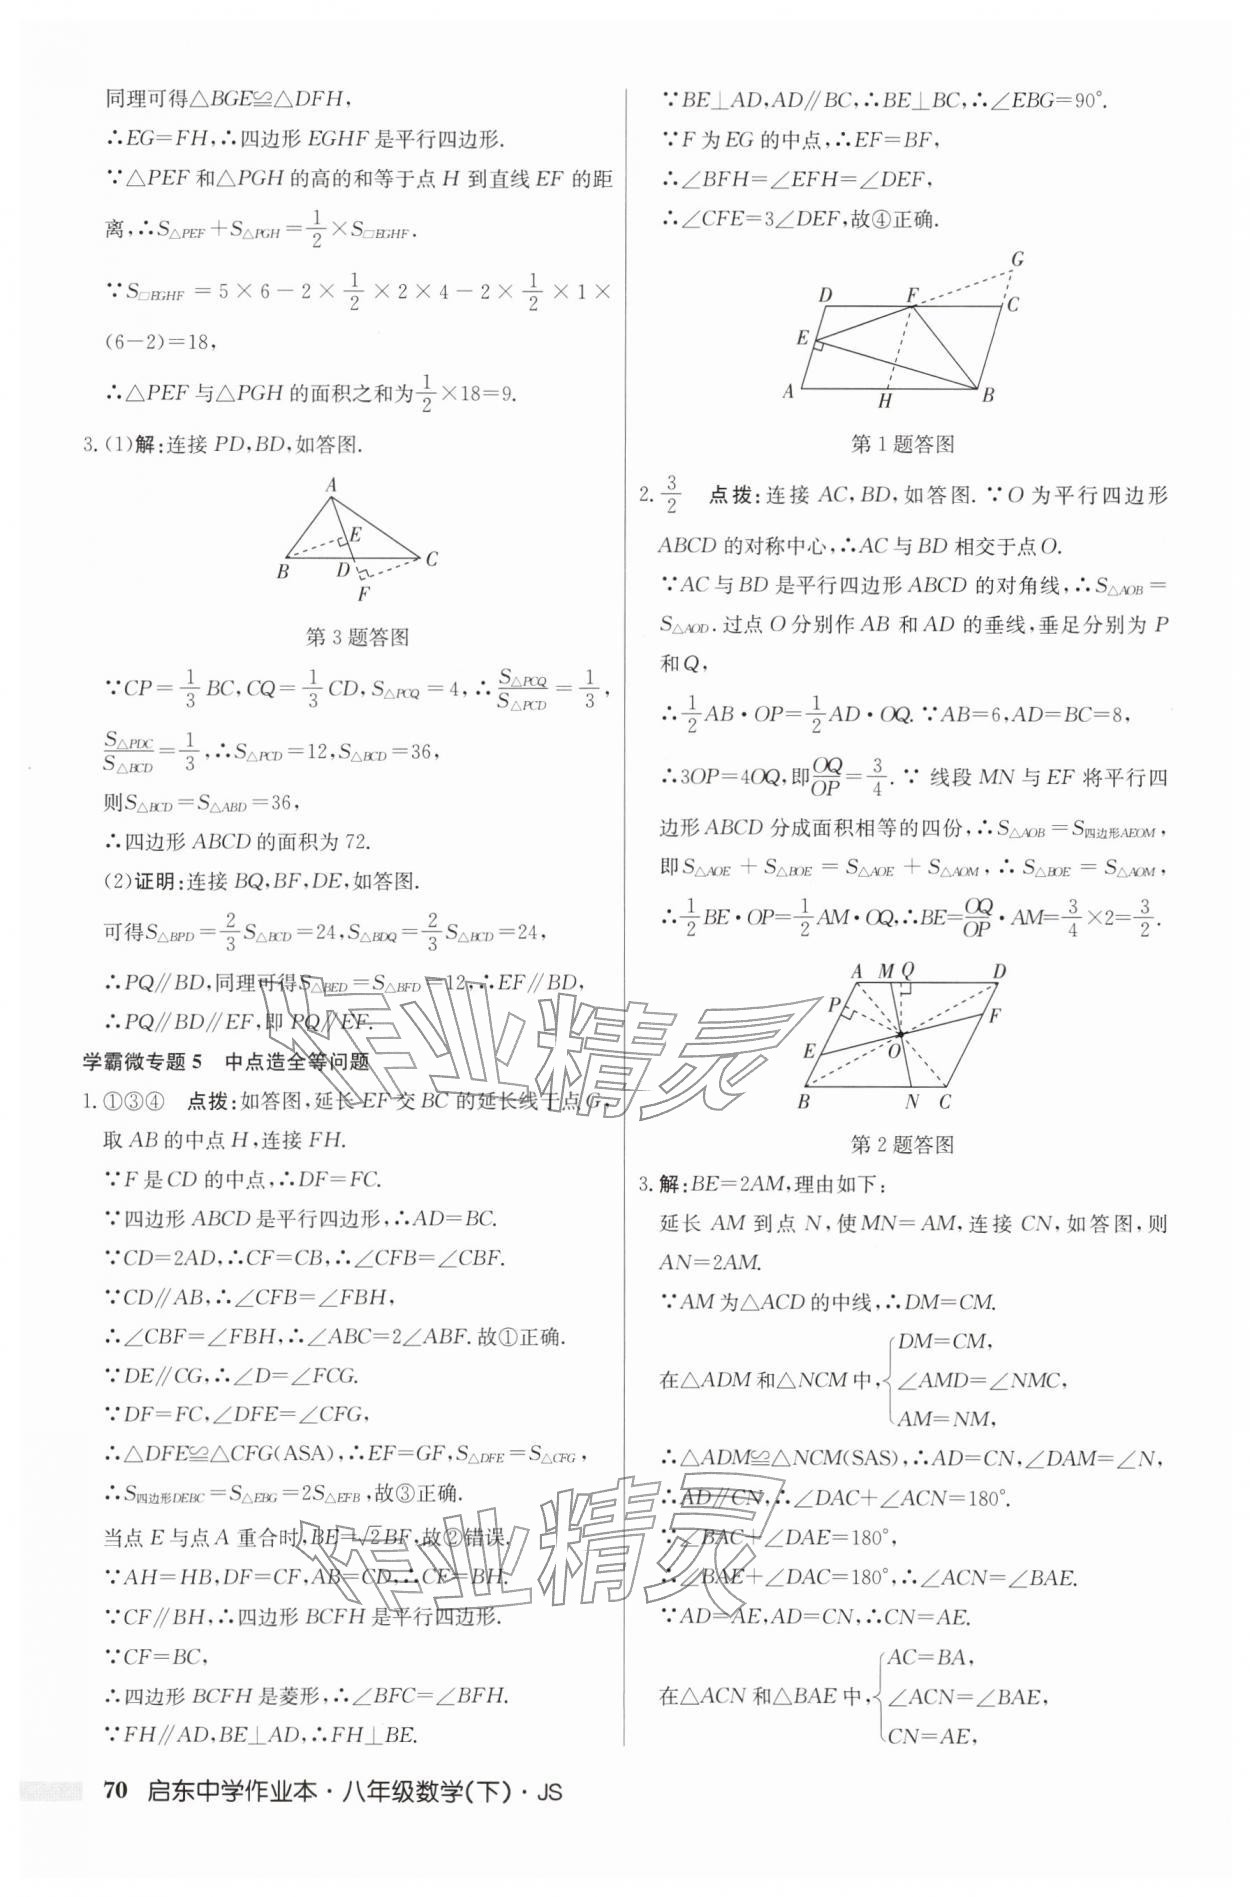 同理可得△BGE≌△DFH,
∴EG=FH,∴四边形 EGHF 是平行四边形.
∵△PEF 和△PGH 的高的和等于点 H 到直线 EF 的距
离,∴S△PEF+S△PGH=1/2×S□EGHF.
∵S□EGHF = 5×6-2×1/2×2×4-2×1/2×1×
(6-2)=18,
∴△PEF 与△PGH 的面积之和为1/2×18=9.
3. (1)解:连接 PD,BD,如答图.
A
E
B D C
F
第 3 题答图
∵CP=1/3 BC,CQ=1/3 CD,S△PCQ=4,∴S△PCQ/S△PCD=1/3,
S△PDC/S△BCD=1/3,∴S△PCD=12,S△BCD=36,
则S△BCD=S△ABD=36,
∴四边形 ABCD 的面积为 72.
(2)证明:连接 BQ,BF,DE,如答图.
可得S△BPD=2/3 S△BCD=24,S△BDQ=2/3 S△BCD=24,
∴PQ∥BD,同理可得S△BED=S△BFD=12,∴EF∥BD,
∴PQ∥BD∥EF,即 PQ∥EF.
学霸微专题 5 中点造全等问题
1. ①③④ 点拨:如答图,延长 EF 交 BC 的延长线于点 G,
取 AB 的中点 H,连接 FH.
∵F 是 CD 的中点,∴DF=FC.
∵四边形 ABCD 是平行四边形,∴AD=BC.
∵CD=2AD,∴CF=CB,∴∠CFB=∠CBF.
∵CD∥AB,∴∠CFB=∠FBH,
∴∠CBF=∠FBH,∴∠ABC=2∠ABF.故①正确.
∵DE∥CG,∴∠D=∠FCG.
∵DF=FC,∠DFE=∠CFG,
∴△DFE≌△CFG(ASA),∴EF=GF,S△DFE=S△CFG,
∴S四边形DEBC=S△EBG=2S△EFB,故③正确.
当点 E 与点 A 重合时,BE=√2BF,故②错误.
∵AH=HB,DF=CF,AB=CD,∴CF=BH.
∵CF∥BH,∴四边形 BCFH 是平行四边形.
∵CF=BC,
∴四边形 BCFH 是菱形,∴∠BFC=∠BFH.
∵FH∥AD,BE⊥AD,∴FH⊥BE.
∵BE⊥AD,AD∥BC,∴BE⊥BC,∴∠EBG=90°.
∵F 为 EG 的中点,∴EF=BF,
∴∠BFH=∠EFH=∠DEF,
∴∠CFE=3∠DEF,故④正确.
G
D F C
E
A H B
第 1 题答图
2. 3/2 点拨:连接 AC,BD,如答图.∵O 为平行四边形
ABCD 的对称中心,∴AC 与 BD 相交于点 O.
∵AC 与 BD 是平行四边形 ABCD 的对角线,∴S△AOB=
S△AOD.过点 O 分别作 AB 和 AD 的垂线,垂足分别为 P
和 Q,
∴1/2 AB·OP=1/2 AD·OQ.∵AB=6,AD=BC=8,
∴3OP=4OQ,即OQ/OP=3/4.∵线段 MN 与 EF 将平行四
边形 ABCD 分成面积相等的四份,∴S△AOB=S四边形AEOM,
即 S△AOE+S△BOE=S△AOE+S△AOM,∴S△BOE=S△AOM,
∴1/2 BE·OP=1/2 AM·OQ,∴BE=OQ/OP·AM=3/4×2=3/2.
A M Q D
P F
E O
B N C
第 2 题答图
3. 解:BE=2AM,理由如下:
延长 AM 到点 N,使MN=AM,连接 CN,如答图,则
AN=2AM.
∵AM 为△ACD 的中线,∴DM=CM.
DM=CM,
在△ADM 和△NCM 中,{∠AMD=∠NMC,
AM=NM,
∴△ADM≌△NCM(SAS),∴AD=CN,∠DAM=∠N,
∴AD∥CN,∴∠DAC+∠ACN=180°.
∵∠BAC+∠DAE=180°,
∴∠BAE+∠DAC=180°,∴∠ACN=∠BAE.
∵AD=AE,AD=CN,∴CN=AE.
AC=BA,
在△ACN 和△BAE 中,{∠ACN=∠BAE,
CN=AE,
70 启东中学作业本·八年级数学(下)·JS
作业精灵
作业精灵